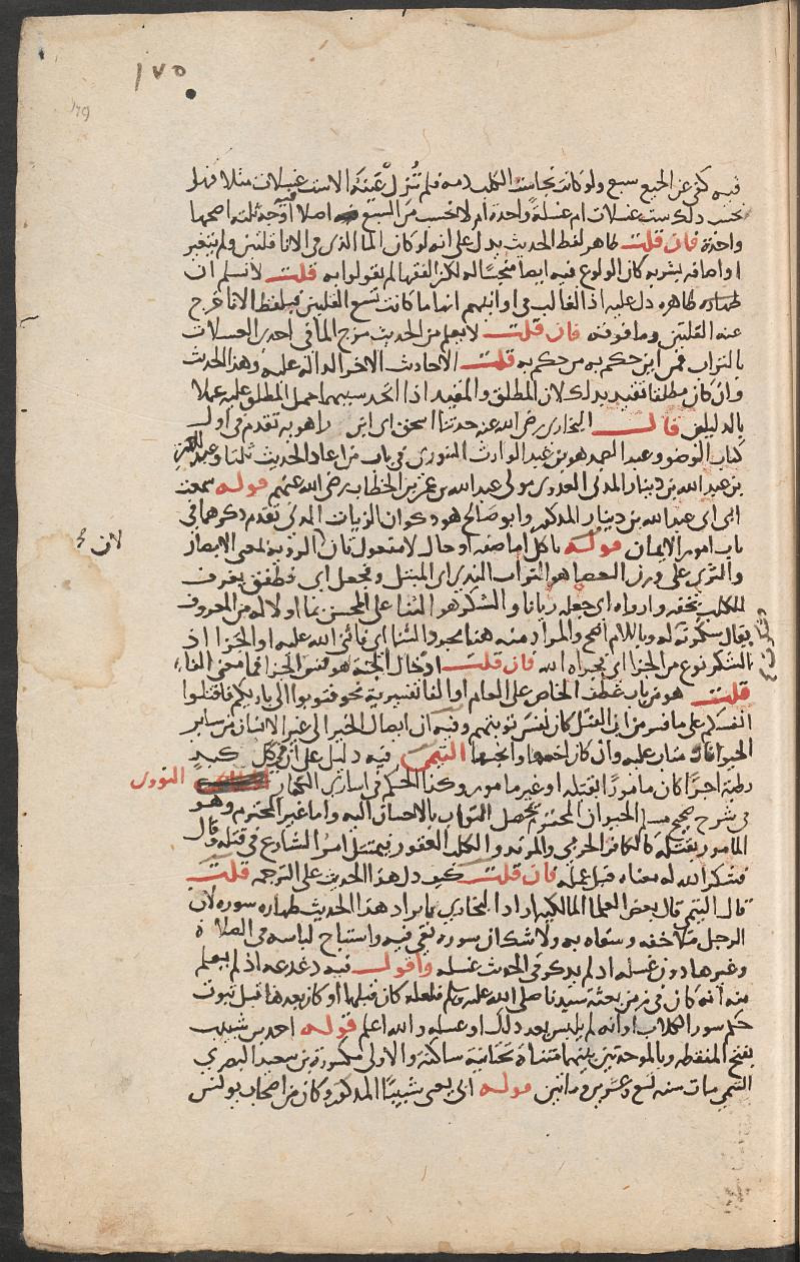 ١٧٥
فيه كفى عن الجميع سبع ولو كانت نجاسة الكلب دمه فلم تزل عينه الا بست غسلات مثلا فهل
يحسب ذلك ست غسلات ام غسلة واحدة ام لا يحسب من السبع اصلا اوجه ثلثة اصحها
واحدة فان قلت ظاهر لفظ الحديث يدل على انه لو كان الما الذى فى الانا قلتين ولم يتغير
اوصافه بشربه كان الولوغ فيه ايضا منجسا له لكن الفقها لم يقولوا به قلت لا نسلم ان
ظاهره دل عليه اذ الغالب فى اوانيهم انها ما كانت تسع القلتين فبلفظ الانا خرج
عنه القلتين وما فوقه فان قلت لا يعلم من الحديث مزج الما فى احدى الغسلات
بالتراب فمن اين حكم به من حكم به قلت الاحاديث الاخر الدالة عليه وهذا الحديث
وان كان مطلقا تقيد بذلك لان المطلق والمقيد اذا اتحد سببهما حمل المطلق عليه عملا
بالدليلين قال البخارى رضى الله عنه حدثنا اسحق اى ابن راهويه تقدم فى اول
كتاب الوضو وعبد الصمد هو بن عبد الوارث التنورى فى باب من اعاد الحديث ثلثا وعبد الرحمن
بن عبد الله بن دينار المدنى العدوى مولى عبد الله بن عمر بن الخطاب رضى الله عنهم قوله سمعت
ابى اى عبد الله بن دينار المذكور وابو صالح هو ذكوان الزيات المدنى تقدم ذكرهما فى
باب امور الايمان قوله ياكل اما صفة او حال لا مفعول ثان الروية بمعنى الابصار
لان
والثرى على وزن العصا هو التراب الندى اى المبتل وجعل اى طفق يغرف
للكلب بخفه وارواه اى جعله ريانا والشكر هو الثنا على المحسن بما اولاه من المعروف
يقال شكرته له وباللام افصح والمراد منه هنا مجرد الثنا اى فاثنى الله عليه او الجزا اذ
وشكرت
الشكر نوع من الجزا اى فجزاه الله فان قلت ادخال الجنة هو نفس الجزا فما معنى الفاء
قلت هو من باب عطف الخاص على العام او الفا تفسيرية نحو فتوبوا الى باريكم فاقتلوا
انفسكم على ما فسر من ان القتل كان نفس توبتهم وفيه ان ايصال الخير الى غير الانسان من ساير
الحيوانات مثاب عليه وان كان اخسها وانجسها التيمى فيه دليل على ان فى كل كبد
رطبة اجرا كان مامورا بقتله او غير مامور وكذا الحكم فى اسارى الكفار النووى
فى شرح صحيح مسلم الحيوان المحترم يحصل الثواب بالاحسان اليه واما غير المحترم وهو
المامور بقتله كالكافر الحربى والمرتد والكلب العقور فيمتثل امر الشارع فى قتله وقال
فشكر الله له معناه قبل عمله فان قلت كيف دل هذا الحديث على الترجمة قلت
قال التيمى قال بعض العلما المالكية اراد البخارى بايراد هذا الحديث طهارة سوره لان
الرجل ملا خفه وسقاه به ولا شك ان سوره بقى فيه واستباح لباسه فى الصلاة
وغيرها دون غسله اذ لم يذكر فى الحديث غسله واقول فيه دغدغة اذ لم يعلم
منه انه كان فى زمن بعثة سيدنا صلى الله عليه وسلم فلعله كان قبلها او كان بعدها قبل ثبوت
حكم سور الكلاب او انه لم يلبس بعد ذلك او غسله والله اعلم قوله احمد بن شبيب
بفتح المنقطة وبالموحدتين بينهما مثناة تحتانية ساكنة والاولى مكسورة بن سعيد البصرى
التيمى مات سنه تسع وعشرين وماتين قوله ابى يعنى شبيبا المذكور وكان من اصحاب يونس